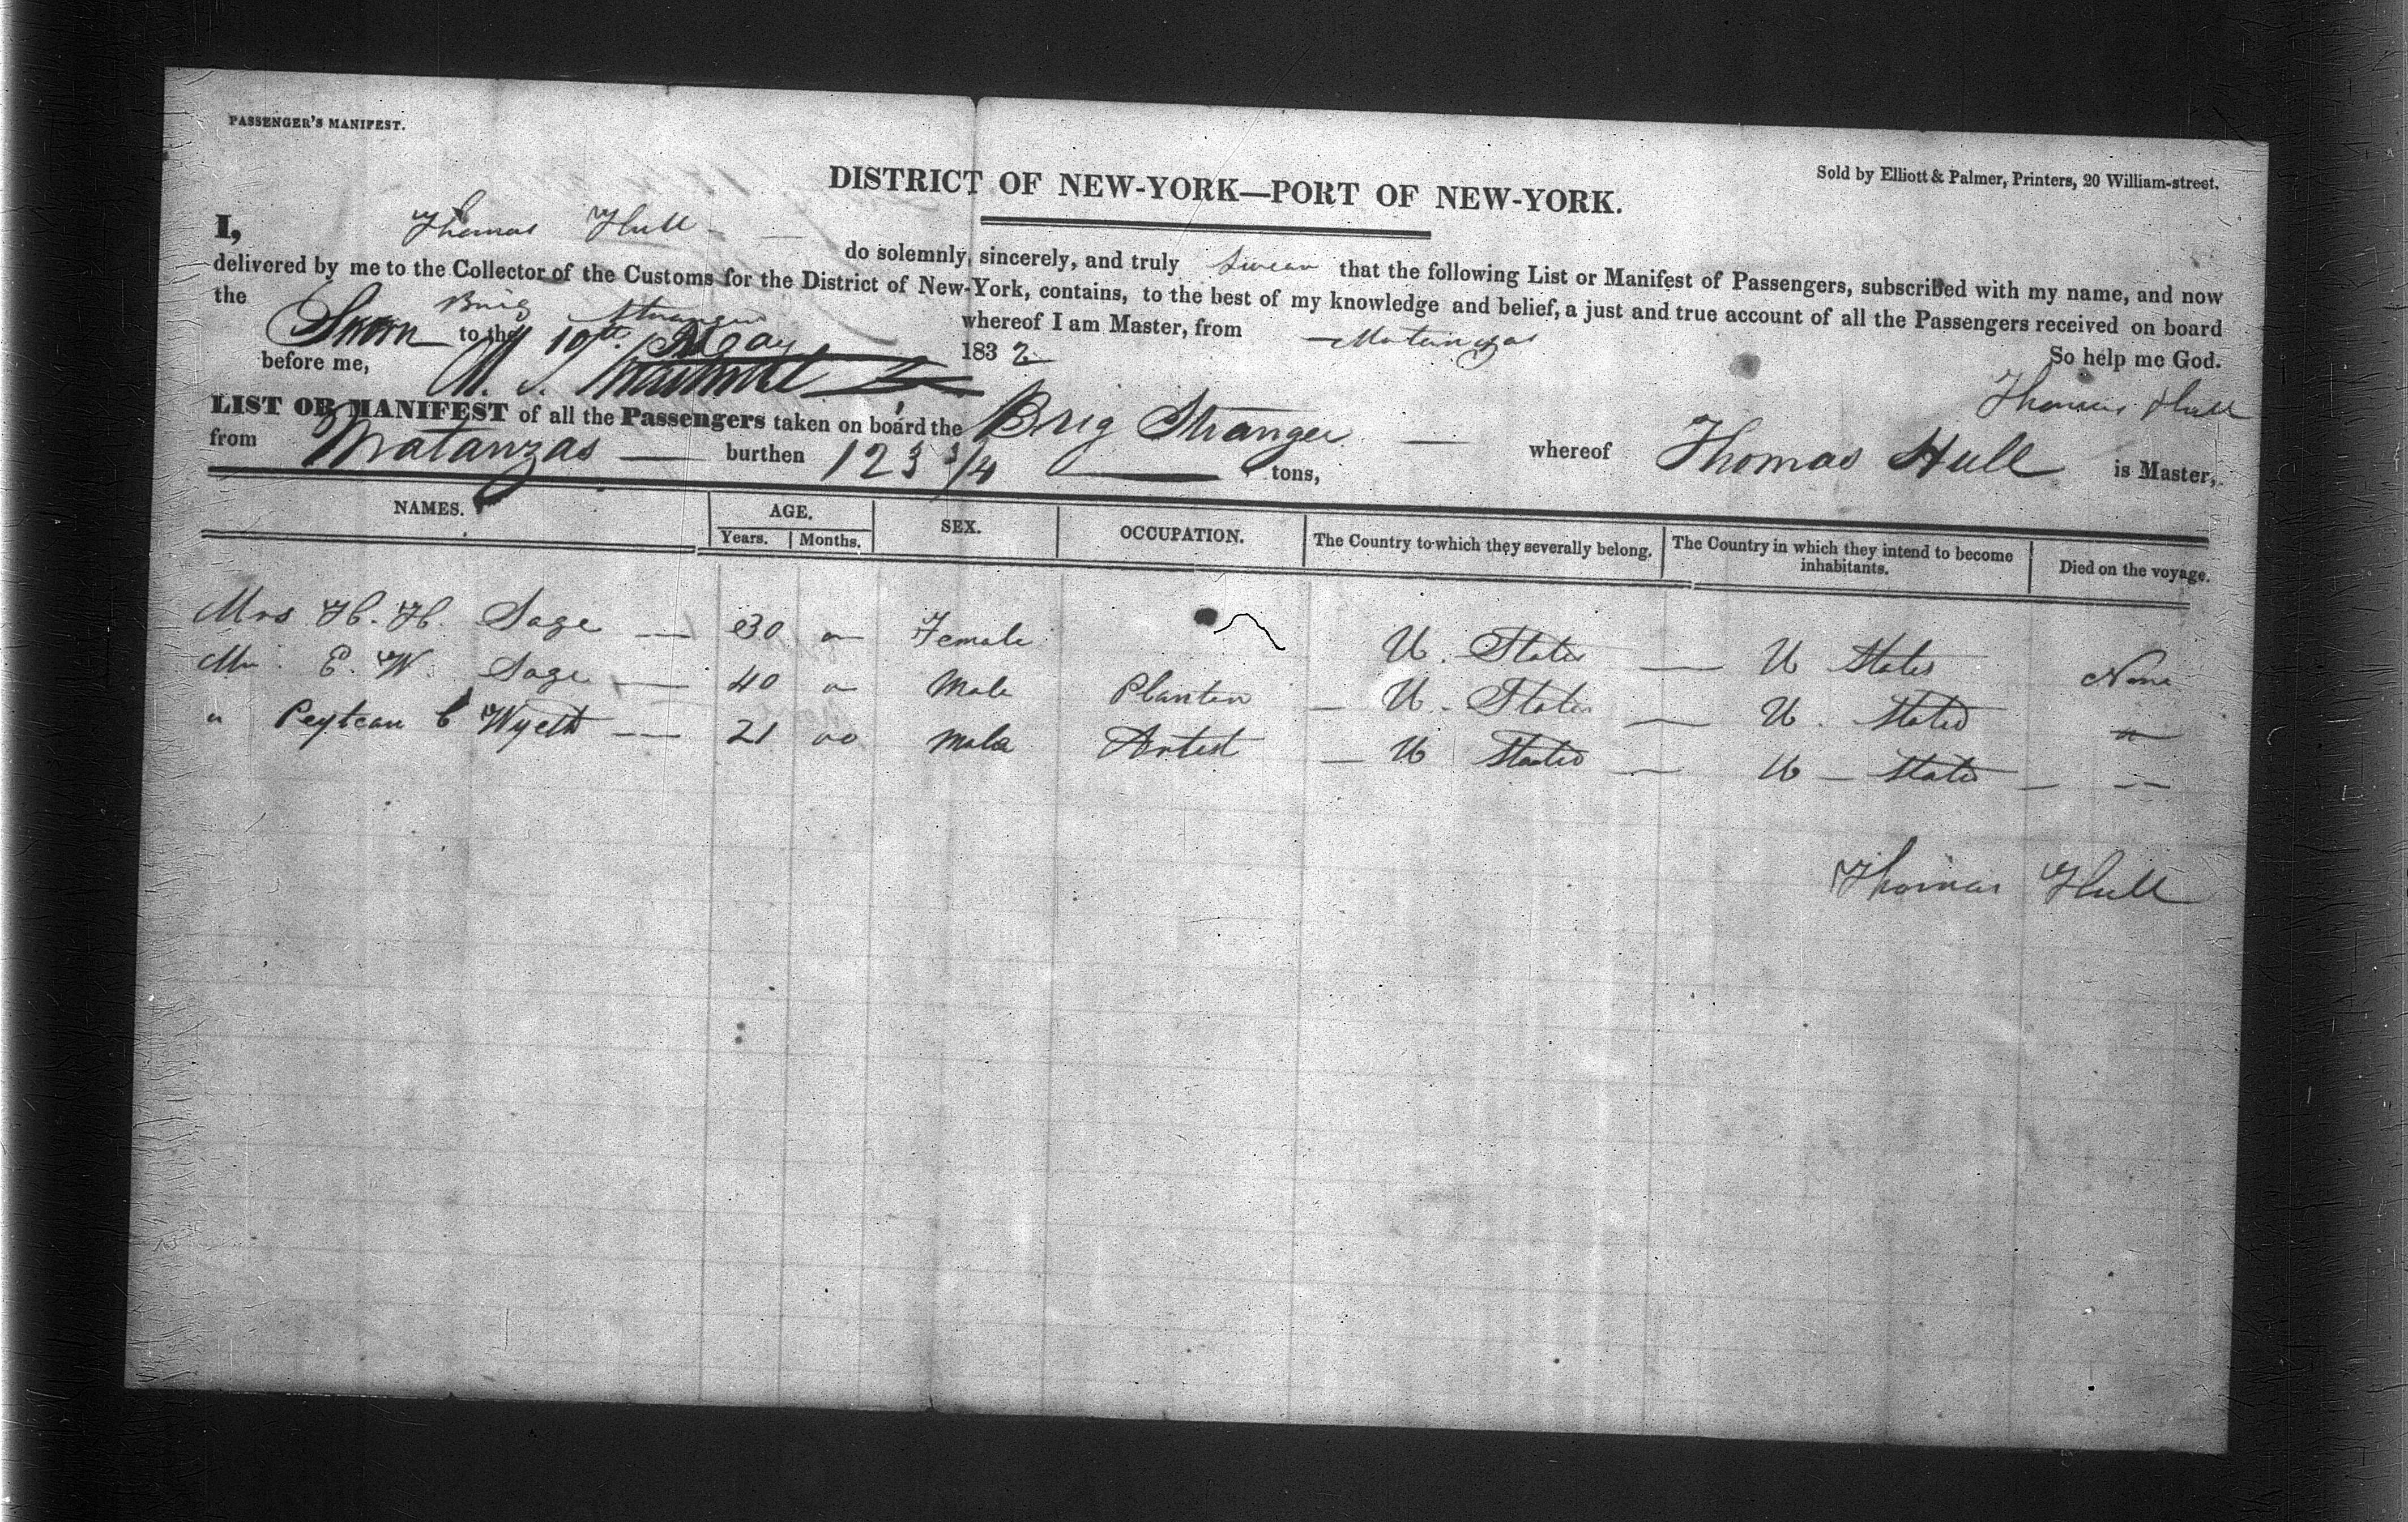 PASSENGER'S MANIFEST.
Sold by Elliott & Palmer, Printers, 20 William-street.
DISTRICT OF NEW-YORK—PORT OF NEW-YORK.
I, Thomas Hull do solemnly, sincerely, and truly swear that the following List or Manifest of Passengers, subscribed with my name, and now
delivered by me to the Collector of the Customs for the District of New-York, contains, to the best of my knowledge and belief, a just and true account of all the Passengers received on board
the Brig Stranger whereof I am Master, from Matanzas
Sworn to the 10th May 1832 So help me God.
before me, Thomas Hull
LIST OR MANIFEST of all the Passengers taken on board the Brig Stranger — whereof Thomas Hull is Master,
from Matanzas — burthen 123 3/4 — tons,
NAMES. AGE. SEX. OCCUPATION. The Country to which they severally belong. The Country in which they intend to become inhabitants. Died on the voyage.
Years. Months.
Mrs H. H. Sage — 30 " Female U. States — U States None
Mr. E. W. Sage — 40 " Male Planter — U. States — U. States "
" C Wyeth — 21 " Male Artist — U States — U — States — "
Thomas Hull